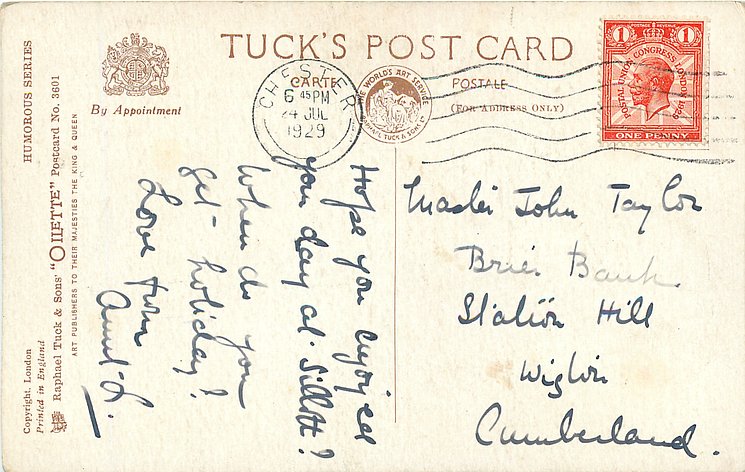 TUCK'S POST CARD
CARTE POSTALE
(FOR ADDRESS ONLY)
By Appointment
HUMOROUS SERIES
Raphael Tuck & Sons' "OILETTE" Postcard No. 3601
ART PUBLISHERS TO THEIR MAJESTIES THE KING & QUEEN
Copyright. London
Printed in England
THE WORLD'S ART SERVICE
RAPHAEL TUCK & SONS LTD
CHESTER
6 45 PM
24 JUL
1929
POSTAGE REVENUE
1 1
POSTAL UNION CONGRESS LONDON 1929
ONE PENNY
Hope you enjoyed
you day at Silloth?
When do you
get holiday?
Love from
Aunt L.
Master John Taylor
Brier Bank
Station Hill
Wigton
Cumberland.